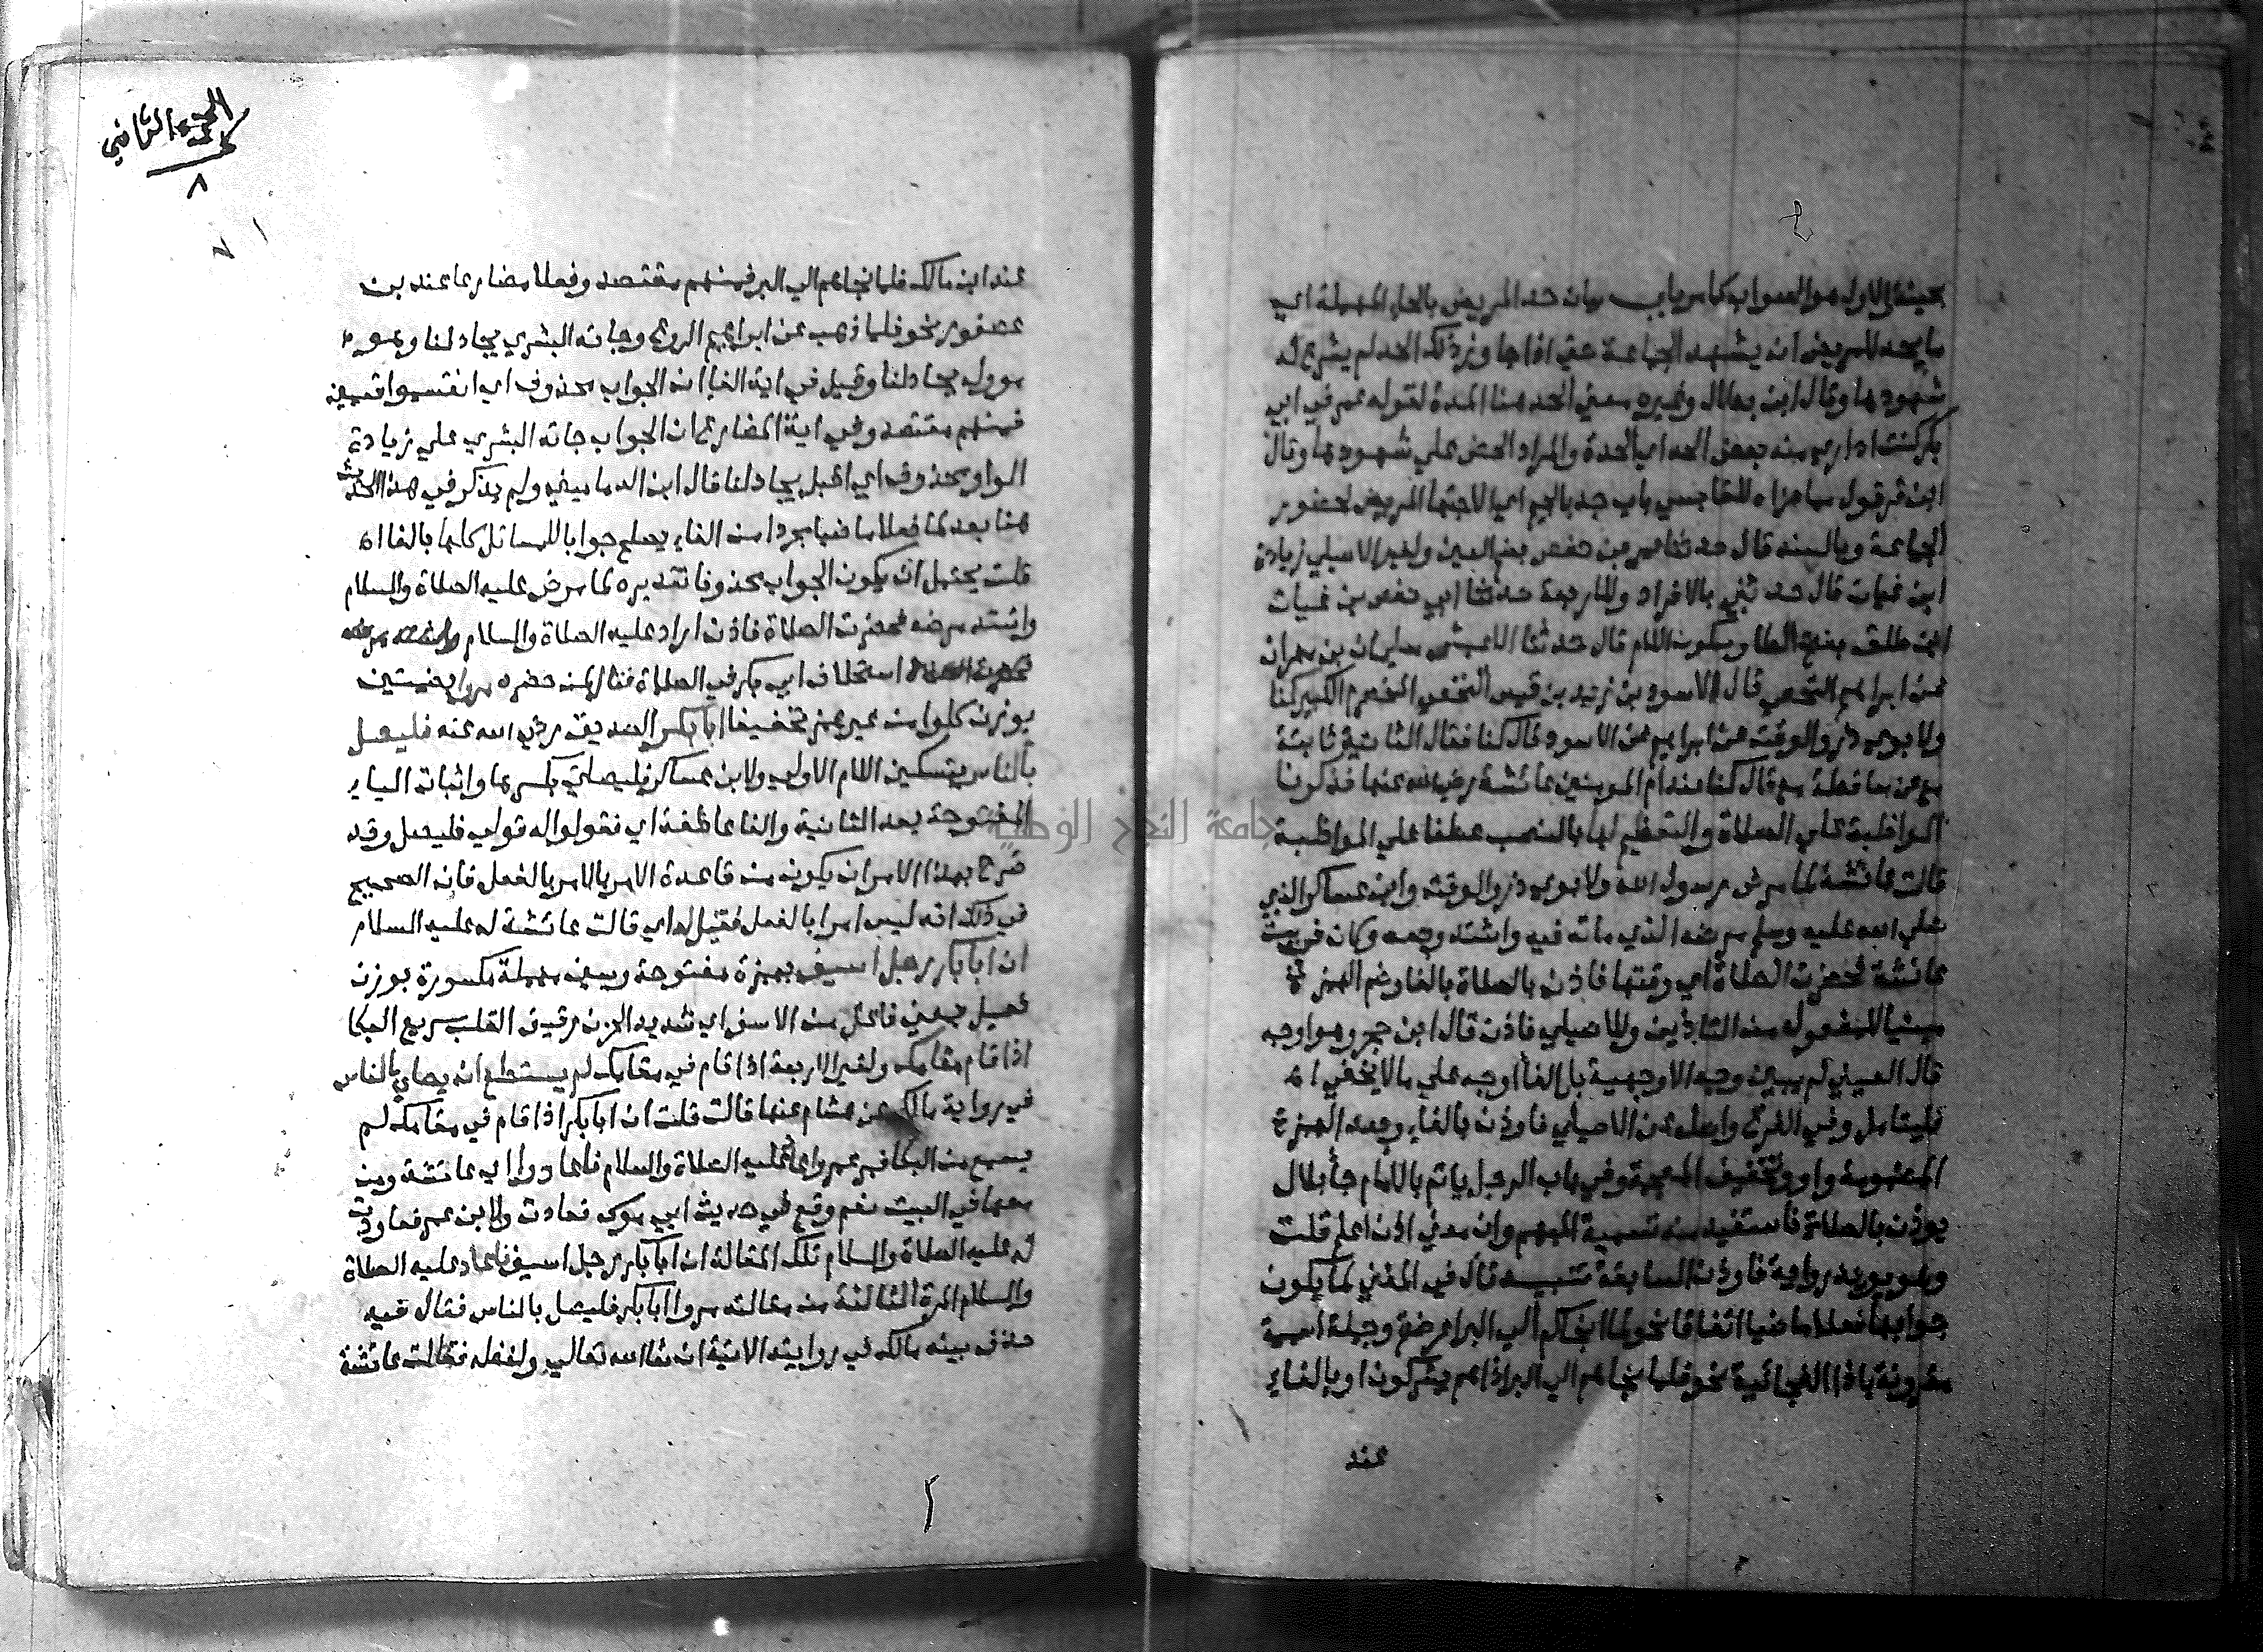 بحينئذ الاول هو الصواب كما مر باب بيان حد المريض بالحاء المهملة اي
ما يحد للمريض ان يشهد الجماعة حتى اذا جاوز ذلك الحد لم يشرع له
شهودها وقال ابن بطال وغيره معني الحد هنا الحدة لقوله عمر في ابي
بكر كنت اداري منه بعض الحد اي الحدة والمراد الحض علي شهودها وقال
ابن قرقول مما عزاه للقابسي باب جد بالجيم اي الاجتهاد المريض لحضور
الجماعة وبالسند قال حدثنا عمر بن حفص بضم العين ولغير الاصيلي زيادة
ابن غياث قال حدثني بالافراد وللاربعة حدثنا ابي حفص بن غياث
ابن طلق بفتح الطا وسكون اللام قال حدثنا الاعمش سليمان بن مهران
عن ابراهيم النخعي قال الاسود بن يزيد بن قيس النخعي المخضرم الكبير كنا
ولابوي ذر والوقت عن ابراهيم عن الاسود قال كنا فقال الثانية ثابتة
مع عن ساقطة مع قال كنا عند ام المومنين عائشة رضي الله عنها فذكرنا
المواظبة علي الصلاة والتعظيم لها بالنصب عطفا علي المواظبة
قالت عائشة لما مرض رسول الله ولابوي ذر والوقت وابن عساكر النبي
صلي الله عليه وسلم مرضه الذي مات فيه واشتد وجعه وكان في بيت
عائشة فحضرت الصلاة اي وقتها فاذن بالصلاة بالفا وضم الهمزة
مبنيا للمفعول من التاذين وللاصيلي فاذن قال ابن حجر وهو اوجه
قال العيني لم يبين وجه الاوجهية بل الفا اوجه علي ما لا يخفي اه
فليتامل وفي الفرع واصله عن الاصيلي فاوذن بالفاء وبعد الهمزة
المضمومة واو وتخفيف المعجمة وفي باب الرجل ياتم بالامام جا بلال
يوذن بالصلاة فاستفيد منه تسمية المبهم وان معني اذن اعلم قلت
وهو يويد رواية فاوذن السابقة تنبيه قال في المغني لما يكون
جوابها فعلا ماضيا اتفاقا نحو فلما انجاكم الي البر اعرضتم وجملة اسمية
مقرونة باذا الفجائية نحو فلما نجاهم الي البر اذا هم يشركون او بالفاء
عند
الجزء الثاني
٨
عند ابن مالك فلما نجاهم الي البر فمنهم مقتصد وفعلا مضارعا عند بن
عصفور نحو فلما ذهب عن ابراهيم الروع وجاته البشري يجادلنا وهو
موول بجادلنا وقيل في اية الفا ان الجواب محذوف اي انقسموا قسمين
فمنهم مقتصد وفي اية المضارع ان الجواب جاته البشري علي زيادة
الواو او محذوف اي اقبل يجادلنا قال ابن الدماميني ولم يذكر في هذا الحديث
هنا بعد لما فعلا ماضيا مجردا من الفاء يصلح جوابا للما بل كلها بالفا اه
قلت يحتمل ان يكون الجواب محذوفا تقديره لما مرض عليه الصلاة والسلام
واشتد مرضه فحضرت الصلاة فاذن اراد عليه الصلاة والسلام
استخلاف ابي بكر في الصلاة فقال لمن حضره مروا بضمتين
بوزن كلوا من غير همز تخفيفا ابا بكر الصديق رضي الله عنه فليصل
بالناس بتسكين اللام الاولي ولابن عساكر فليصلي بكسرها واثبات الياء
المفتوحة بعد الثانية والفا عاطفة اي فقولوا له قولي فليصل وقد
خرج بهذا الامر ان يكون من قاعدة الامر بالامر بالفعل فان الصحيح
في ذلك انه ليس امرا بالفعل فقيل له اي قالت عائشة له عليه السلام
ان ابا بكر رجل اسيف بهمزة مفتوحة وسين مهملة مكسورة بوزن
فعيل بمعني فاعل من الاسف اي شديد الحزن رقيق القلب سريع البكا
اذا قام مقامك ولغير الاربعة اذا قام في مقامك لم يستطع ان يصلي بالناس
في رواية مالك عن هشام عنها قالت قلت ان ابا بكر اذا قام في مقامك لم
يسمع من البكا فمر عمر واعاد عليه الصلاة والسلام فاعادوا اي عائشة ومن
معها في البيت نعم وقع في حديث ابي موسي فعادت ولابن عمر فعاودت
له عليه الصلاة والسلام تلك المقالة ان ابا بكر رجل اسيف فاعاد عليه الصلاة
والسلام المرة الثالثة من مقالته مروا ابا بكر فليصل بالناس فقال فيه
حذف بينه مالك في روايته الاتية ان شا الله تعالي ولفظه فقالت عائشة